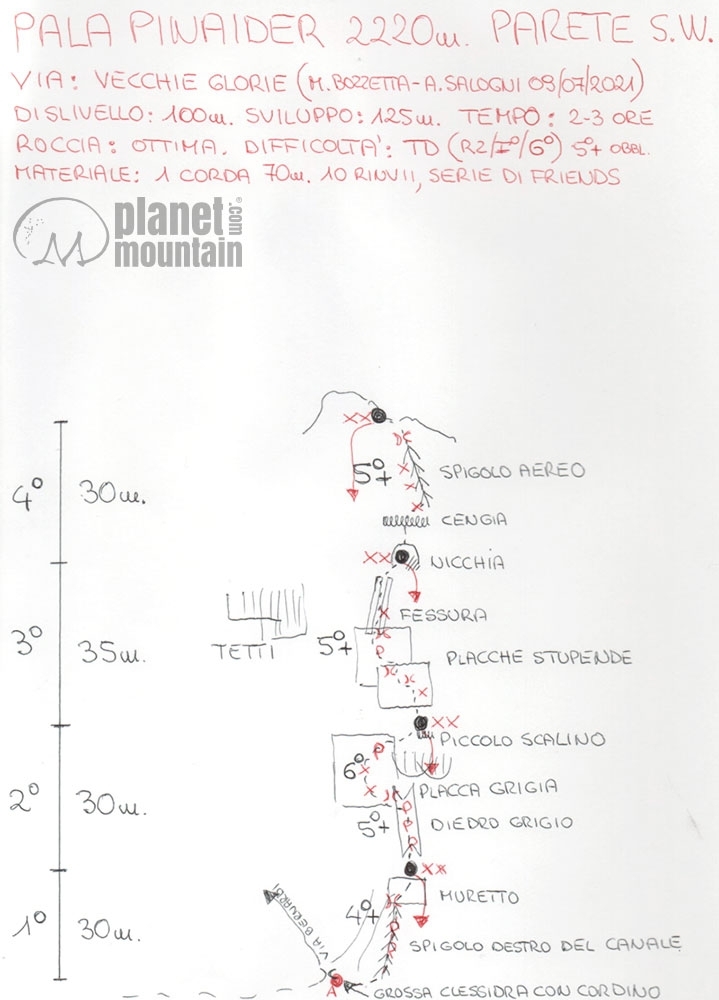 PALA PINAIDER 2220m. PARETE S.W.
VIA: VECCHIE GLORIE (M.BOZZETTA-A.SALOGNI 09/07/2021)
DISLIVELLO: 100m. SVILUPPO: 125m. TEMPO: 2-3 ORE
ROCCIA: OTTIMA. DIFFICOLTA': TD (R2/I°/6°) 5°+ OBBL.
MATERIALE: 1 CORDA 70m. 10 RINVII, SERIE DI FRIENDS
planet
mountain
.com
©
XX
5°+
SPIGOLO AEREO
4° 30m.
CENGIA
XX
NICCHIA
FESSURA
TETTI
5°+
3° 35m.
P
PLACCHE STUPENDE
XX
PICCOLO SCALINO
P
6°
PLACCA GRIGIA
2° 30m.
5°+
P
P
P
DIEDRO GRIGIO
XX
MURETTO
VIA BERNARDI
4°+
1° 30m.
P
P
SPIGOLO DESTRO DEL CANALE
A
GROSSA CLESSIDRA CON CORDINO